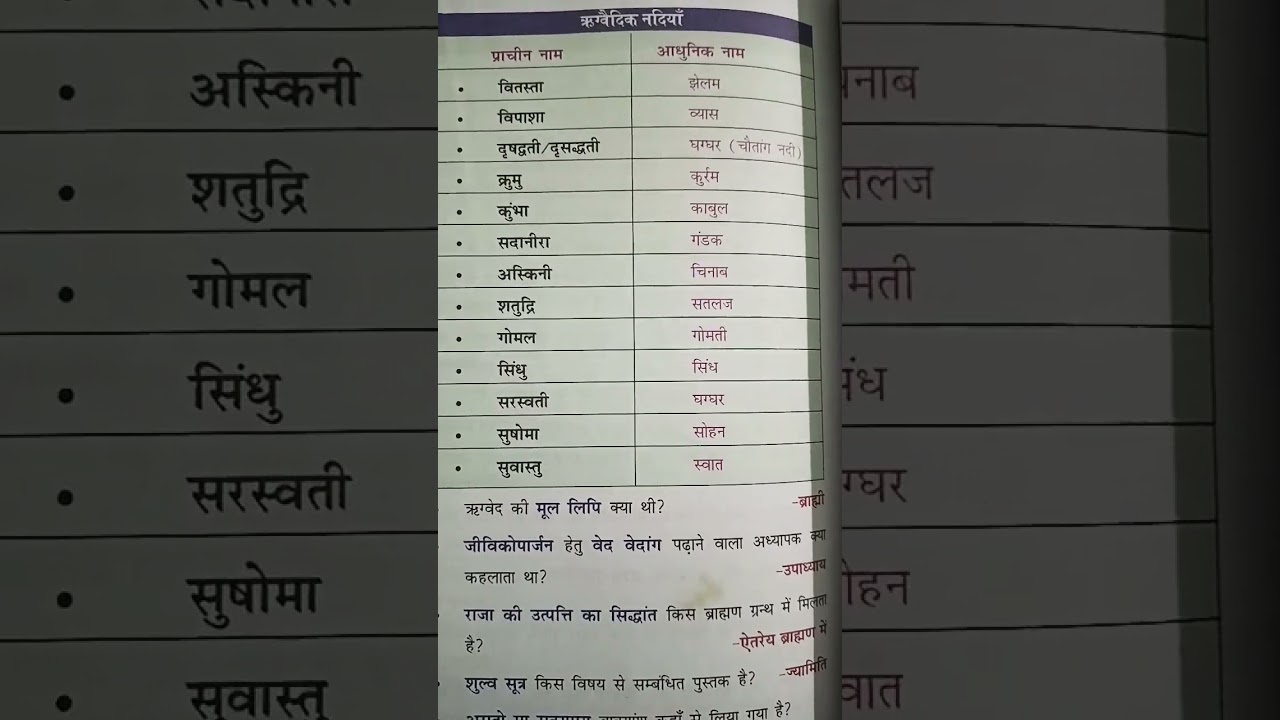 ऋग्वैदिक नदियाँ
प्राचीन नाम आधुनिक नाम
• वितस्ता झेलम
• विपाशा व्यास
• दृषद्वती/दृसद्धती घग्घर (चौतांग नदी)
• क्रुमु कुर्रम
• कुंभा काबुल
• सदानीरा गंडक
• अस्किनी चिनाब
• शतुद्रि सतलज
• गोमल गोमती
• सिंधु सिंध
• सरस्वती घग्घर
• सुषोमा सोहन
• सुवास्तु स्वात
ऋग्वेद की मूल लिपि क्या थी? -ब्राह्मी
जीविकोपार्जन हेतु वेद वेदांग पढ़ाने वाला अध्यापक क्या
कहलाता था? -उपाध्याय
राजा की उत्पत्ति का सिद्धांत किस ब्राह्मण ग्रन्थ में मिलता
है? -ऐतरेय ब्राह्मण में
शुल्व सूत्र किस विषय से सम्बंधित पुस्तक है? -ज्यामिति
से लिया गया है?
• अस्किनी
• शतुद्रि
• गोमल
• सिंधु
• सरस्वती
• सुषोमा
• सुवास्तु